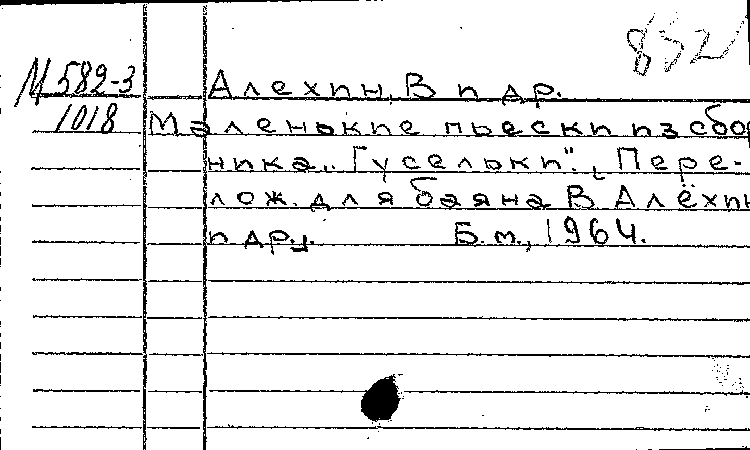 852
М 582-3
1018
Алехин, В и др.
Маленькие пьески из сбор
ника „Гусельки". [Пере-
лож. для баяна В Алёхин
и др.].   Б. м., 1964.